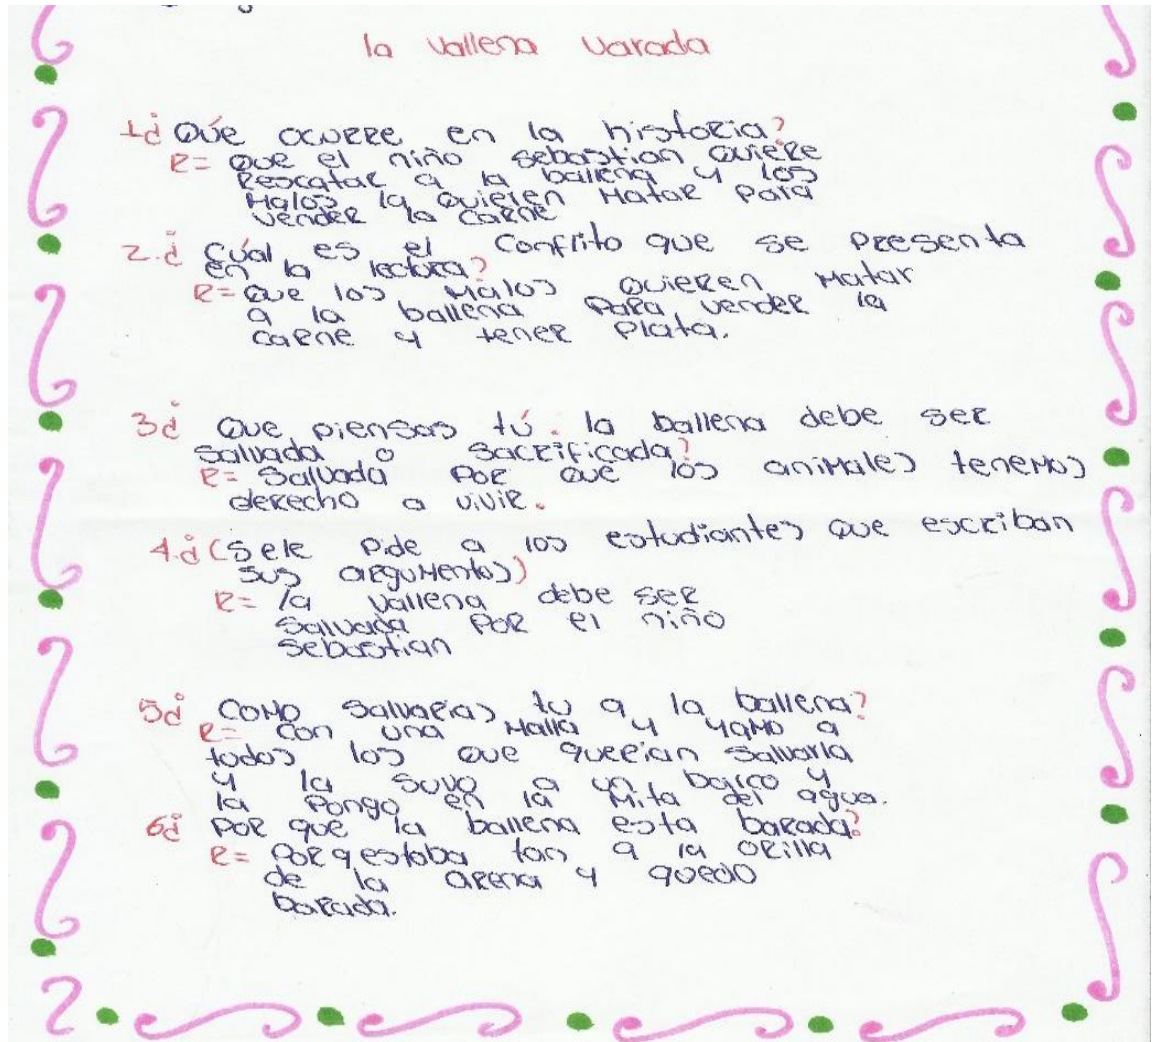 la vallena varada
1¿ Qúe ocurre en la historia?
R= que el niño sebastian quiere
rescatar a la ballena y los
malos la quieren matar para
vender la carne
2.¿ Cúal es el conflito que se presenta
en la lectura?
R= Que los malos quieren matar
a la ballena para vender la
carne y tener plata.
3¿ Que piensas tú. la ballena debe ser
salvada o sacrificada?
R= Salvada por que los animales tenemos
derecho a vivir.
4.¿ (Sele pide a los estudiantes que escriban
sus argumentos)
R= la vallena debe ser
salvada por el niño
sebastian
5¿ Como salvarias tu a la ballena?
R= con una malla y yamo a
todos los que querian salvarla
y la suvo a un barco y
la pongo en la mita del agua.
6¿ Por que la ballena esta barada?
R= Porq estaba tan a la orilla
de la arena y quedo
barada.